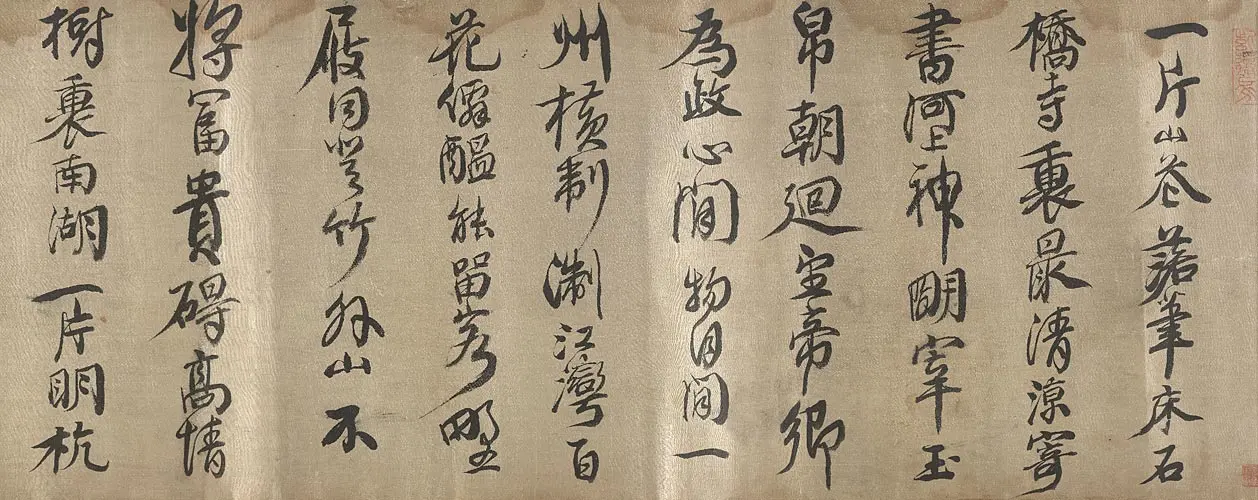 一片山花落筆床石
橋寺裏最清涼寄
書河上神明宰玉
帛朝迴望帝鄉
為政心閒物自閒一
州橫制淛江灣百
花僊醞能留客野
屐同登竹外山不
將富貴礙高情
樹裏南湖一片明杭